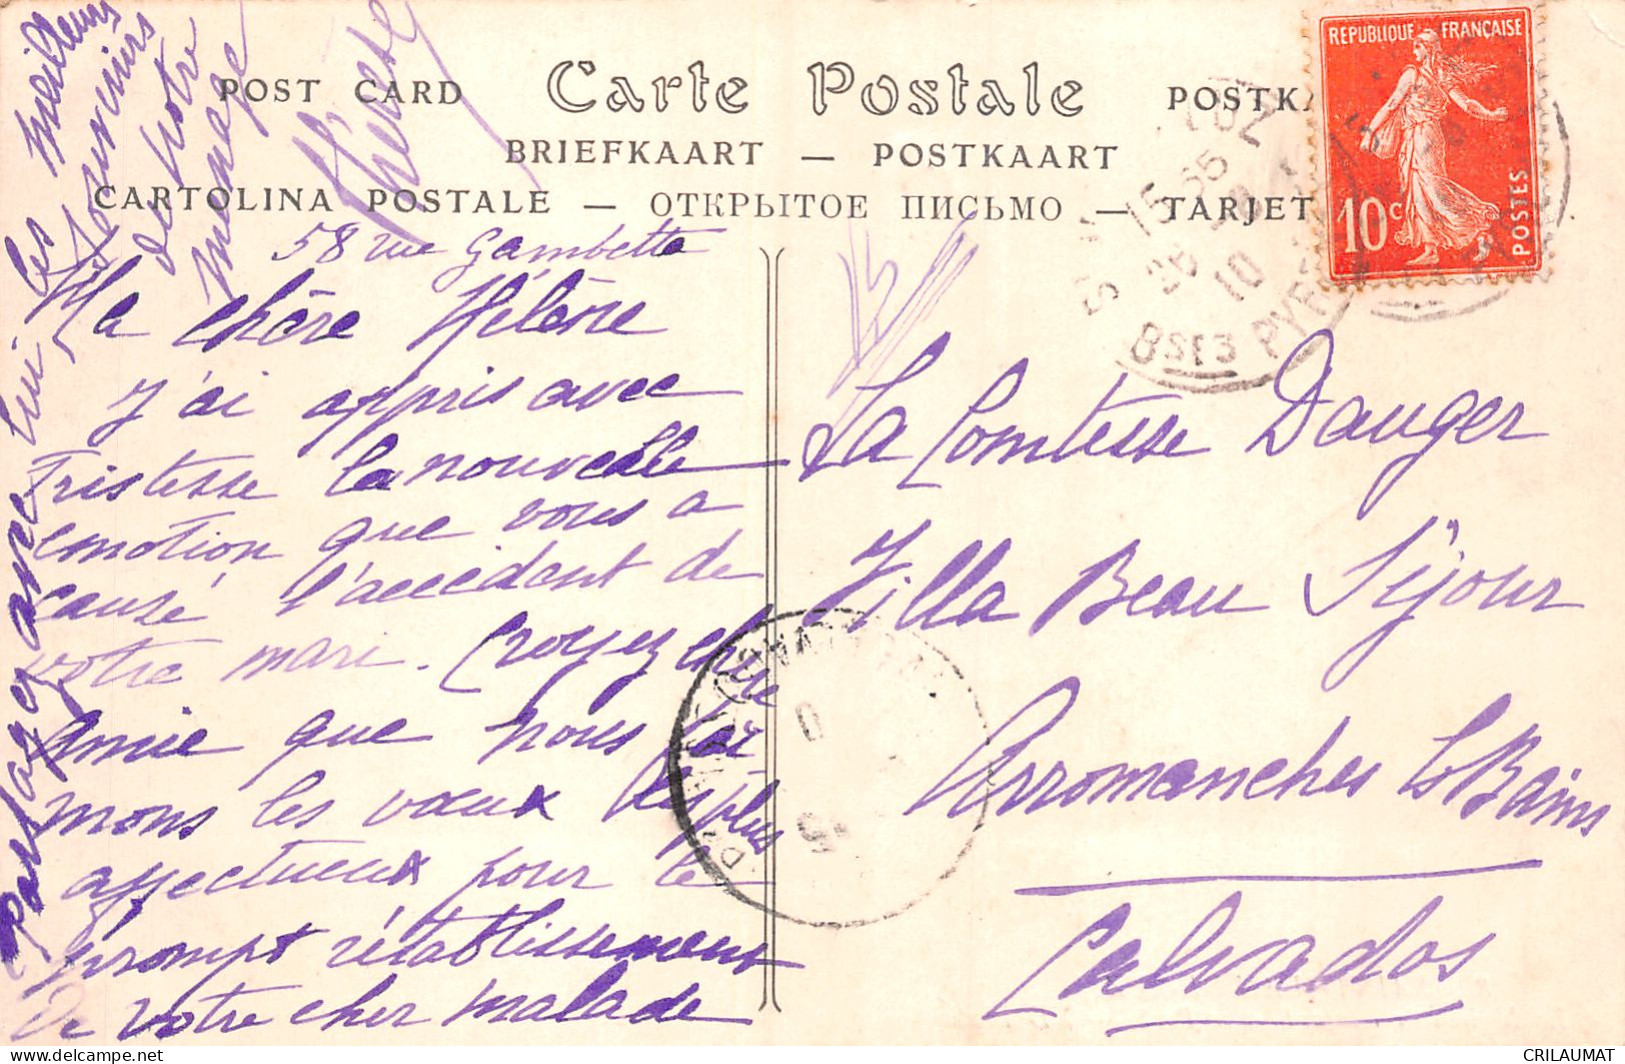 POST CARD Carte Postale POSTK
BRIEFKAART — POSTKAART
CARTOLINA POSTALE — ОТКРЫТОЕ ПИСЬМО — TARJET
REPUBLIQUE FRANÇAISE
10c
POSTES
15 35
26 10
BSES PYR
58 rue Gambetta
Ma chère Hélène
J'ai appris avec
Tristesse la nouvelle
emotion que vous a
causé l'accident de
votre mari. Croyez chère
Amie que nous for
mons les vœux les plus
affectueux pour le
prompt rétablissement
de votre cher malade
Partagez avec lui les
Meilleurs
Souvenirs
de notre
menage
Thérèse
La Comtesse Dauger
Villa Beau Séjour
Arromanches les Bains
Calvados
CRILAUMAT